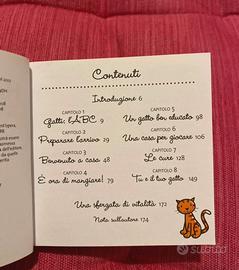 Contenuti
Introduzione 6
CAPITOLO 1
Gatti: l'ABC 9
CAPITOLO 2
Preparare l'arrivo 29
CAPITOLO 3
Benvenuto a casa 48
CAPITOLO 4
È ora di mangiare! 79
CAPITOLO 5
Un gatto ben educato 98
CAPITOLO 6
Una casa per giocare 106
CAPITOLO 7
Le cure 128
CAPITOLO 8
Tu e il tuo gatto 149
Una sferzata di vitalità 172
Nota sull'autore 174
subito